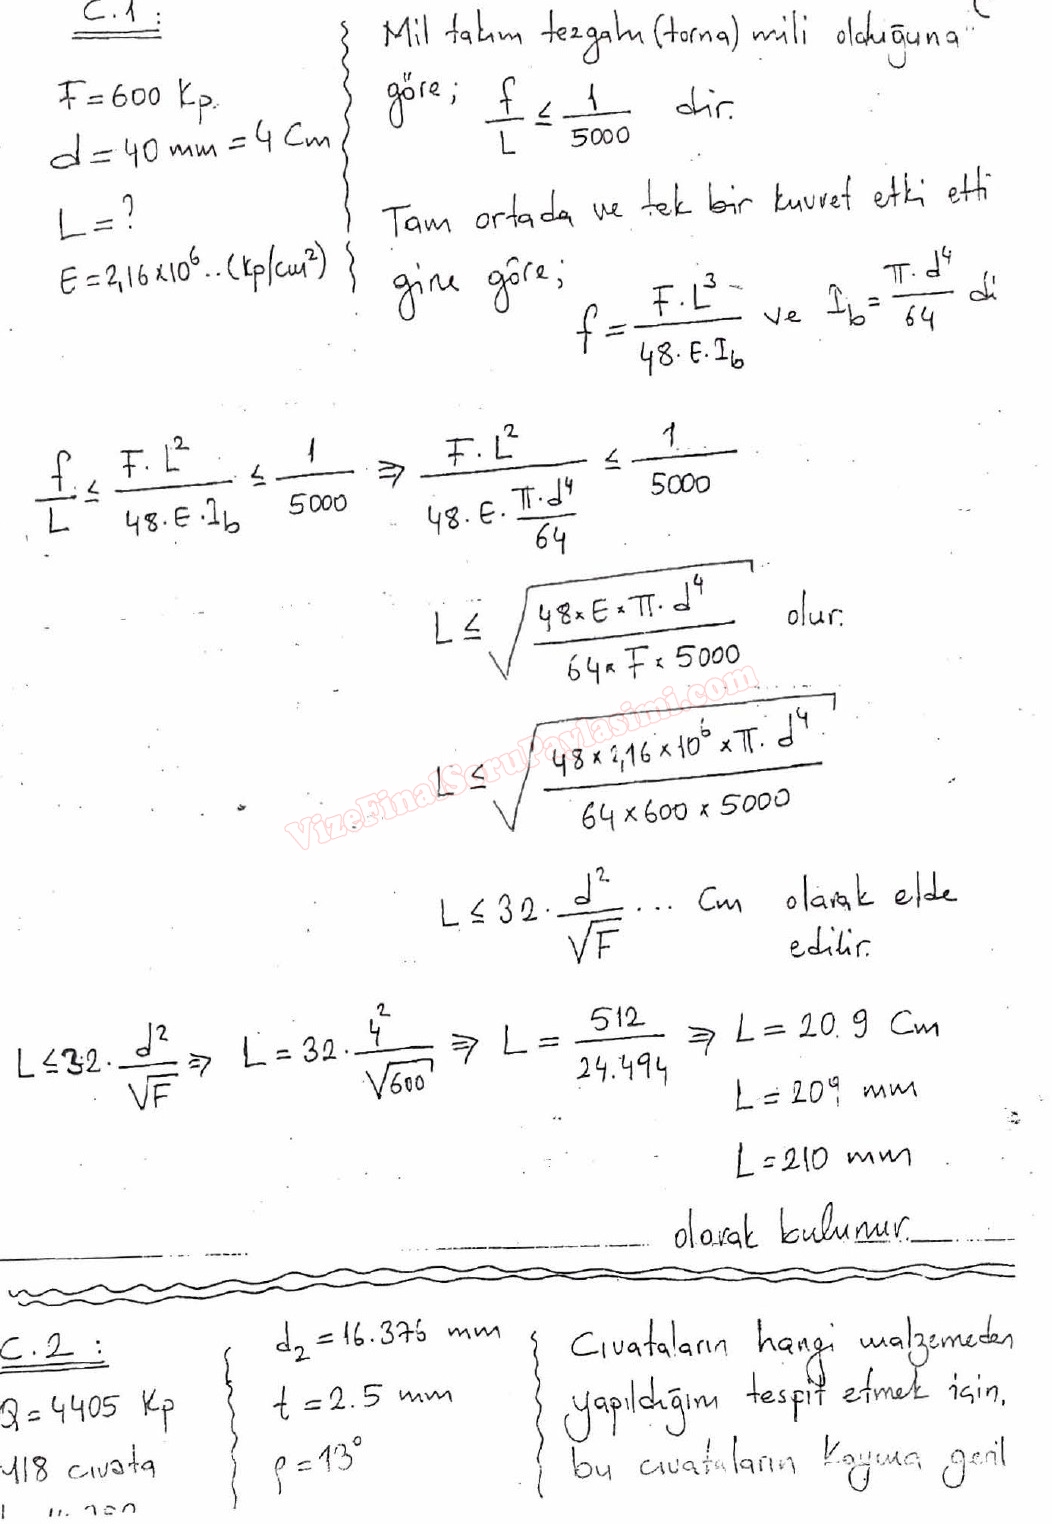 C.1 :
F = 600 Kp.
d = 40 mm = 4 Cm
L = ?
E = 2,16x10⁶ .. (kp/cm²)
Mil takım tezgahı (torna) mili olduğuna
göre; f/L ≤ 1/5000 dir.
Tam ortada ve tek bir kuvvet etki etti
gine göre;
f = F.L³/48.E.I_b ve I_b = π.d⁴/64 di
f/L ≤ F.L²/48.E.I_b ≤ 1/5000 ⇒ F.L²/(48.E.π.d⁴/64) ≤ 1/5000
L ≤ √(48xExπ.d⁴/64xFx5000) olur.
L ≤ √(48x2,16x10⁶xπ.d⁴/64x600x5000)
VizeFinalSoruPaylasimi.com
L ≤ 32. d²/√F ... Cm olarak elde
edilir.
L ≤ 32. d²/√F ⇒ L = 32. 4²/√600 ⇒ L = 512/24.494 ⇒ L = 20.9 Cm
L = 209 mm
L = 210 mm
olarak bulunur.
C.2 :
Q = 4405 Kp
M18 cıvata
d₂ = 16.376 mm
t = 2.5 mm
ρ = 13°
Cıvataların hangi malzemeden
yapıldığım tespit etmek için,
bu cıvataların Kayma geril